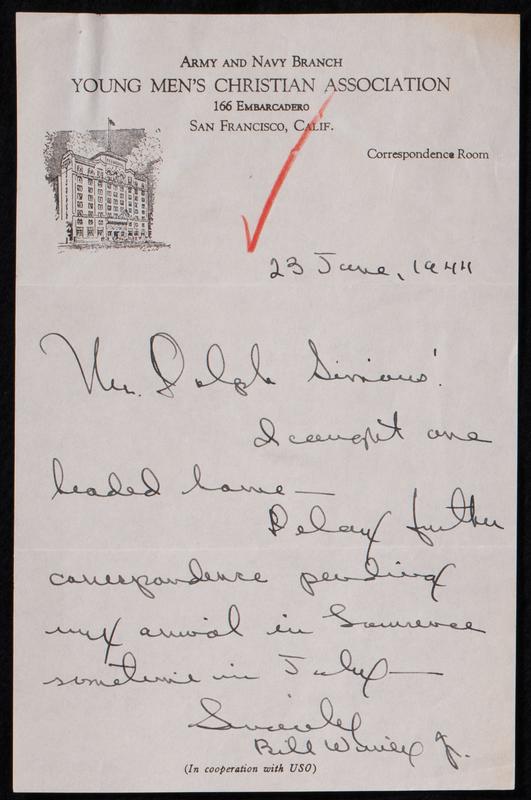 Army and Navy Branch
YOUNG MEN'S CHRISTIAN ASSOCIATION
166 Embarcadero
San Francisco, Calif.
Correspondence Room
23 June, 1944
Mr. Dolph Simons:
I caught one
headed home —
Delay further
correspondence pending
my arrival in Lawrence
sometime in July —
Sincerely
Bill Jr.
(In cooperation with USO)